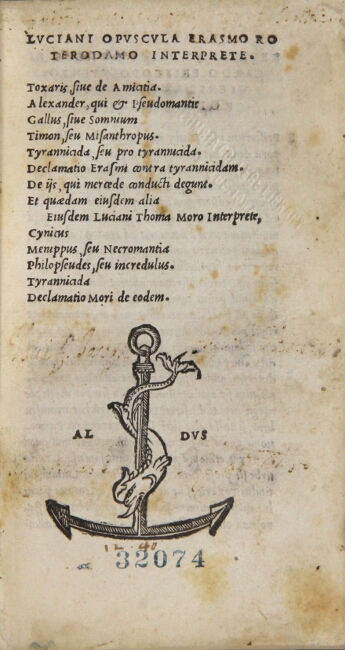 LVCIANI OPVSCVLA ERASMO RO
TERODAMO INTERPRETE.
Toxaris, siue de Amicitia.
Alexander, qui & Pseudomantis
Gallus, siue Somnium
Timon, seu Misanthropus.
Tyrannicida, seu pro tyrannicida.
Declamatio Erasmi contra tyrannicidam.
De ijs, qui mercede conducti degunt.
Et quædam eiusdem alia
Eiusdem Luciani Thoma Moro Interprete,
Cynicus
Menippus, seu Necromantia
Philopseudes, seu incredulus.
Tyrannicida
Declamatio Mori de eodem.
AL DVS
32074